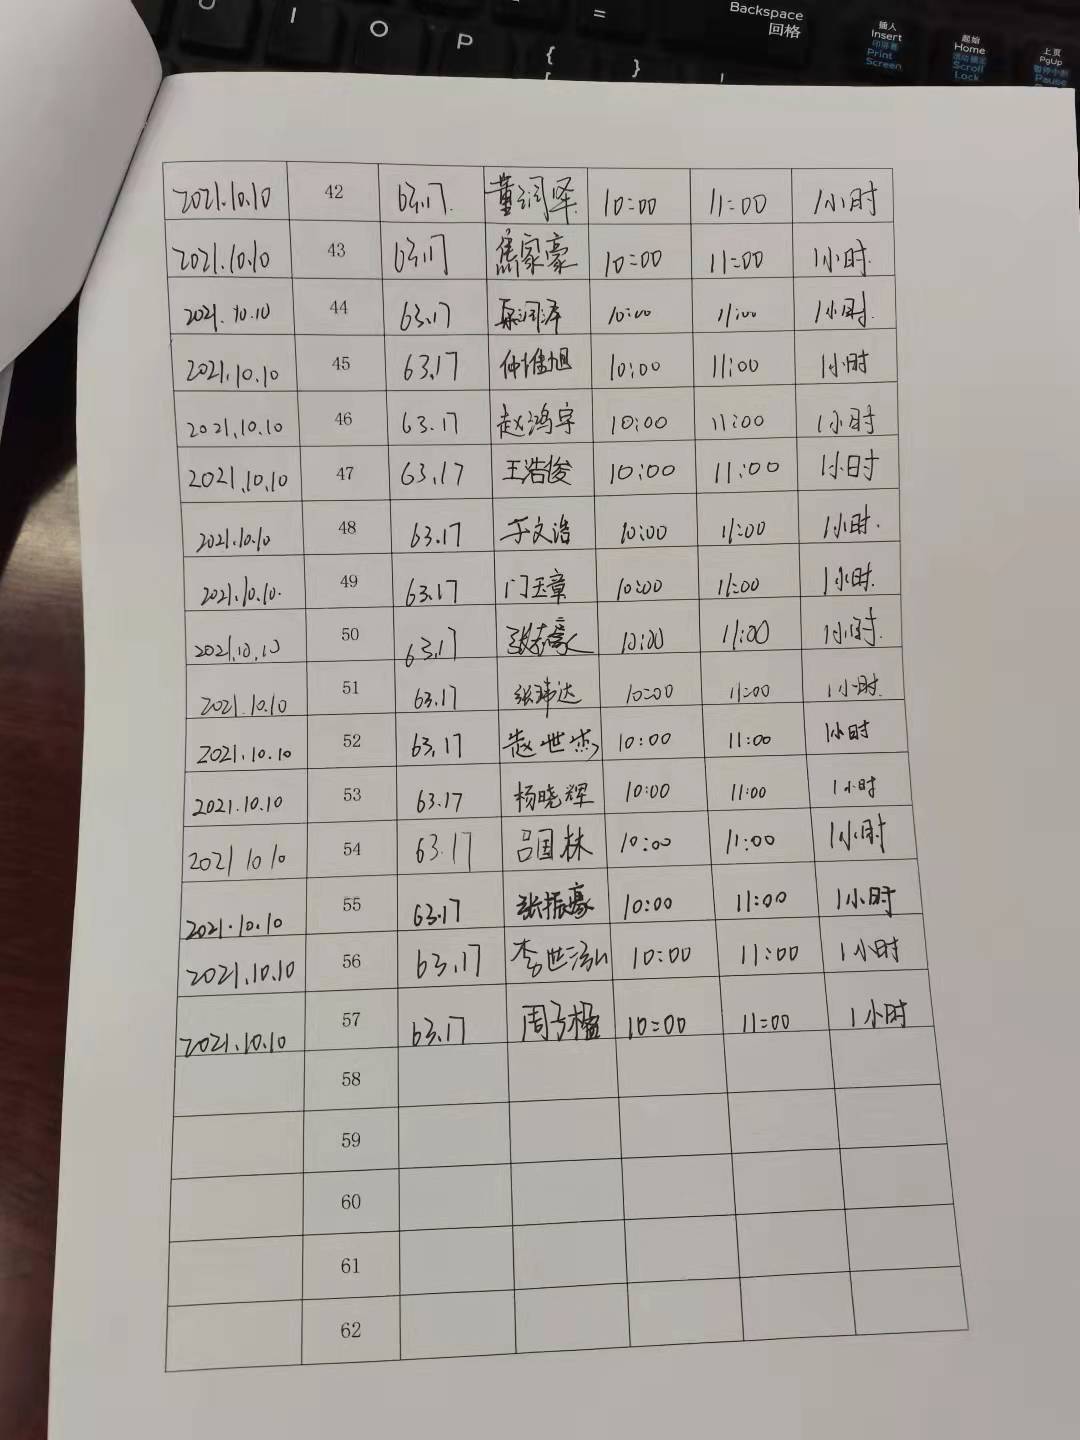 U I O P { } =
Backspace
回格
插入
Insert
印屏幕
Print
Screen
起始
Home
Scroll
Lock
上页
PgUp
Pause
2021.10.10 42 63.17. 董润泽 10:00 11:00 1小时
2021.10.10 43 63.17 焦家豪 10:00 11:00 1小时.
2021.10.10 44 63.17 10:00 11:00 1小时.
2021.10.10 45 63.17 仲惟旭 10:00 11:00 1小时
2021.10.10 46 63.17 赵鸿宇 10:00 11:00 1小时
2021.10.10 47 63.17 王浩俊 10:00 11:00 1小时
2021.10.10 48 63.17 于文浩 10:00 11:00 1小时.
2021.10.10. 49 63.17 门玉章 10:00 11:00 1小时.
2021.10.10 50 63.17 10:00 11:00 1小时.
2021.10.10 51 63.17 张玮达 10:00 11:00 1小时.
2021.10.10 52 63.17 赵世杰 10:00 11:00 1小时
2021.10.10 53 63.17 杨晓辉 10:00 11:00 1小时
2021 10 10 54 63.17 吕国林 10:00 11:00 1小时
2021.10.10 55 63.17 张振豪 10:00 11:00 1小时
2021.10.10 56 63.17 李世泓 10:00 11:00 1小时
2021.10.10 57 63.17 10:00 11:00 1小时
58
59
60
61
62